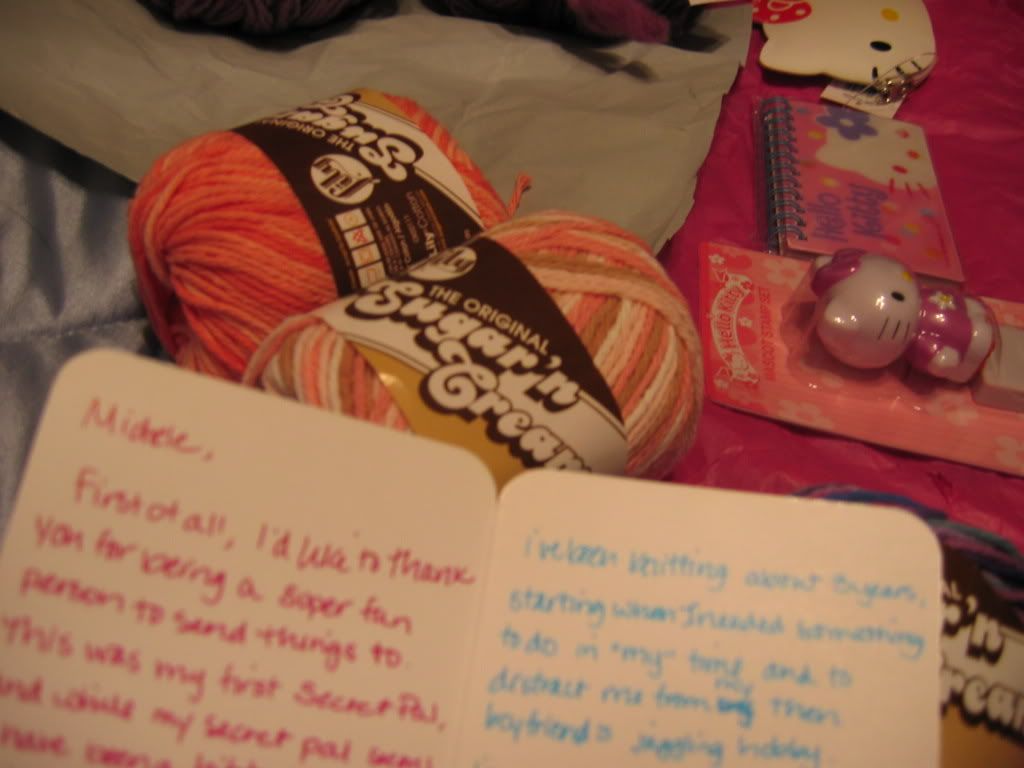 THE ORIGINAL
Sugar'n
Lily
THE ORIGINAL
Sugar'n
Cream
Hello
Kitty
Hello Kitty
MASCOT STAMP SET
Michele,
First of all, I'd like to thank
you for being a super fan
person to send things to.
This was my first Secret Pal,
and while my secret pal
have been a
i've been knitting about 3 years,
starting when I needed something
to do in "my" time and to
distract me from my then
boyfriend's juggling hobby.
r'n
ream